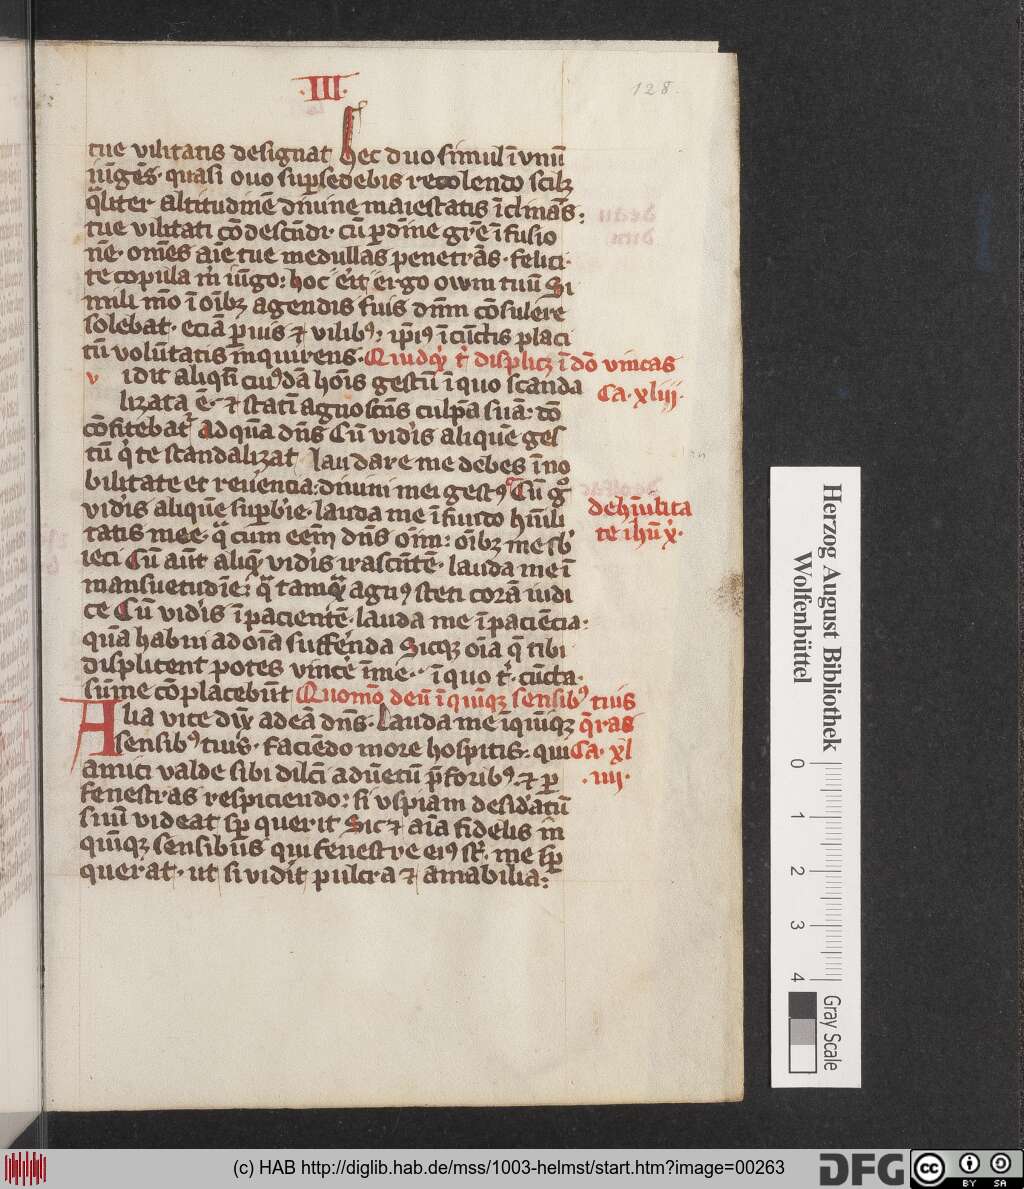 ·III·
128.
tue vilitatis designat hec duo simul ī vnū
iūgēs· quasi ouo suꝑsedebis recolendo scilꝫ
q̄liter altitudinē diuine maiestatis īclinās:
tue vilitati cō descēdi· cū ꝑ diuīne gr̄e ī fusio
nē· omēs aīe tue medullas penetrās· felici
te copula m̄ iūgo: hoc erit ergo owm tuū Si
mili mō ī oībꝫ agendis suis dnm cōsulere
solebat· eciā ꝑuis ⁊ vilibꝰ; ip̄iꝰ ī cūctis placi
tū volūtatis inquirens· Quidqͥd tͥ displicꝫ ī dō vincas
vidit aliqn̄ cuiꝰdā hoīs gestū ī quo scanda
Ca· xliii·
lizata ē· ⁊ statī agnoscēs culpā suā· dō
cōfitebatr ad quā dn̄s Cū vidis aliquē ges
tū qͥ te scandalizat laudare me debes ī no
bilitate et reuēencia: diuini mei gestꝰ Cū gͦ
vidis aliquē suꝑbie· lauda me ī fundo humili
de hūilita
tatis mee· q̄ cum eem̄ dn̄s oīm: oībꝫ me sb
te ihū xͥ·
ieci Cū aūt aliqͥ vidis irascētē· lauda me ī
mansuetudīe: qͣ tamqͣ agnꝰ steti corā iudi
ce Cū vidis ī pacientē· lauda me ī paciēcia:
quā habui ad oīa sufferēda Sicqꝫ oīa q̄ tibi
displicent potes vincē ī me·· ī quo tͥ· cūcta·
sūme cōplacebūt Quomō deū ī quīqꝫ sensibꝰ tuis
Alia vice dix ad eā dn̄s· Lauda me ī quīqꝫ q̄ras
sensibꝰ tuis· faciēdo more hospitis: qui Ca· xl
amici valde sibi dilcī aduētū p̄ foribꝰ· ⁊ ꝑ
·iiii·
fenestras respiciendo: si vspiam desidatū
suū videat sꝑ querit Sic ⁊ aīa fidelis in
quīqꝫ sensibus qui fenestre eiꝰ st̄· me sꝑ
querat· ut si vidit pulcra ⁊ amabilia:
Herzog August Bibliothek
Wolfenbüttel
0 1 2 3 4
Gray Scale
(c) HAB http://diglib.hab.de/mss/1003-helmst/start.htm?image=00263
DFG
cc BY SA